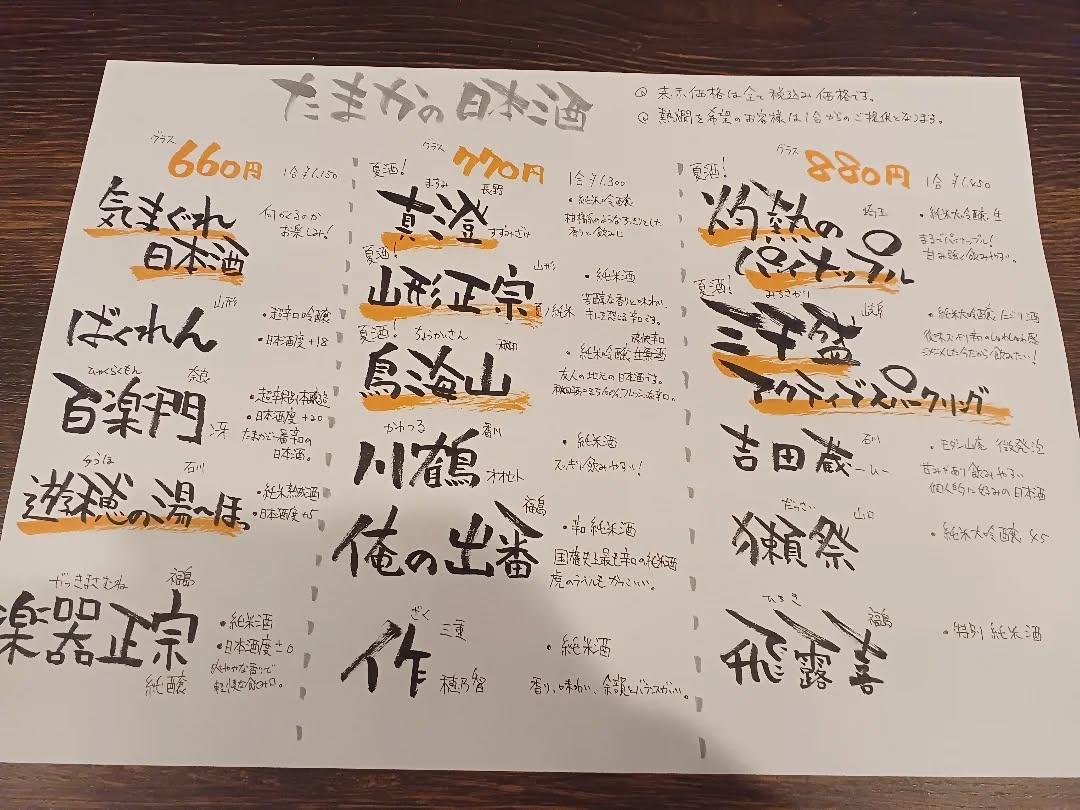 たまかの日本酒
表示価格は全て税込み価格です。
熱燗を希望のお客様は1合からのご提供となります。
グラス
660円
1合 ¥1,150
気まぐれ
日本酒
何がくるのか
お楽しみ!
山形
ばくれん
・超辛口吟醸
・日本酒度+18
ひゃくらくもん
奈良
百楽門
冴
・日本酒度+20
たまかで一番辛口の
日本酒。
ゆうほ
石川
遊穂の湯〜ほっ
・純米熟成酒
・日本酒度+5
がっきまさむね
福島
楽器正宗
純醸
・純米酒
・日本酒度±0
爽やかな香りで
軽快な飲み口。
グラス
770円
1合 ¥1,300
夏酒!
ますみ
長野
真澄
すずみざけ
・純米吟醸
夏酒!
山形
山形正宗
夏ノ純米
・純米酒
芳醇な香りと味わい
夏酒!
ちょうかいさん
秋田
鳥海山
・純米吟醸生原酒
友人の地元の日本酒です。
かわつる
香川
川鶴
オオセト
・純米酒
スッキリ飲みやすい!
福島
俺の出番
・辛口純米酒
国権史上最も辛口の純米酒
虎のラベルもかっこいい。
ざく
三重
作
穂乃智
・純米酒
香り、味わい、余韻とバランスがいい。
グラス
880円
1合 ¥1,450
夏酒!
埼玉
灼熱の
パイナップル
・純米大吟醸 生
まるでパイナップル!
甘み強く飲みやすい。
夏酒!
みちさかり
岐阜
三千盛
アクティブスパークリング
・純米大吟醸 にごり酒
石川
吉田蔵
・モダン山廃 微発泡
甘みがあり飲みやすい
個人的に好みの日本酒
だっさい
山口
獺祭
・純米大吟醸 45
ひろき
福島
飛露喜
・特別純米酒